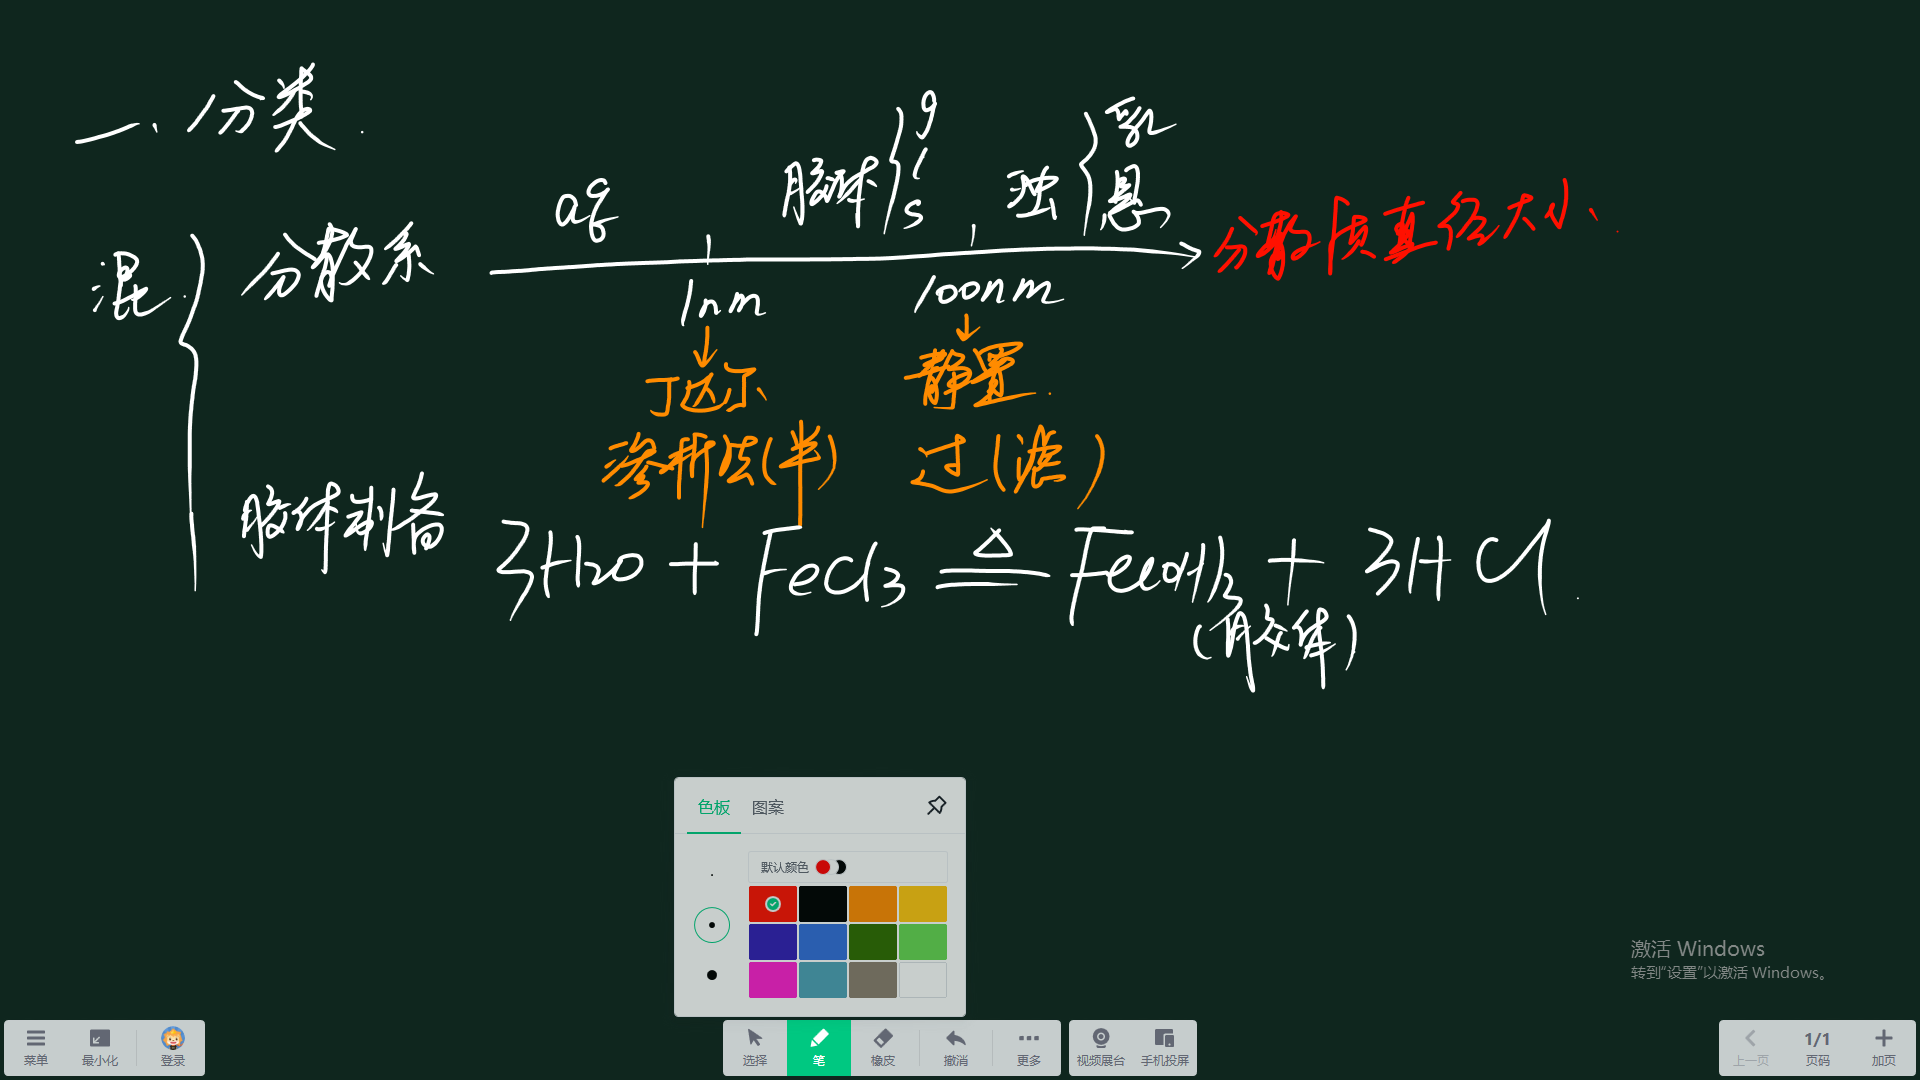 一、分类.
混.
分散系
aq
胶体 g l s
, 浊 乳 悬
分散质直径大小
1nm
100nm
↓
↓
丁达尔
静置.
渗析法(半)
过(滤)
胶体制备
3H₂O + FeCl₃ ≜ Fe(OH)₃ + 3HCl.
(胶体)
色板 图案
默认颜色
激活 Windows
转到“设置”以激活 Windows。
菜单 最小化 登录
选择 笔 橡皮 撤消 更多
视频展台 手机投屏
1/1
上一页 页码 加页